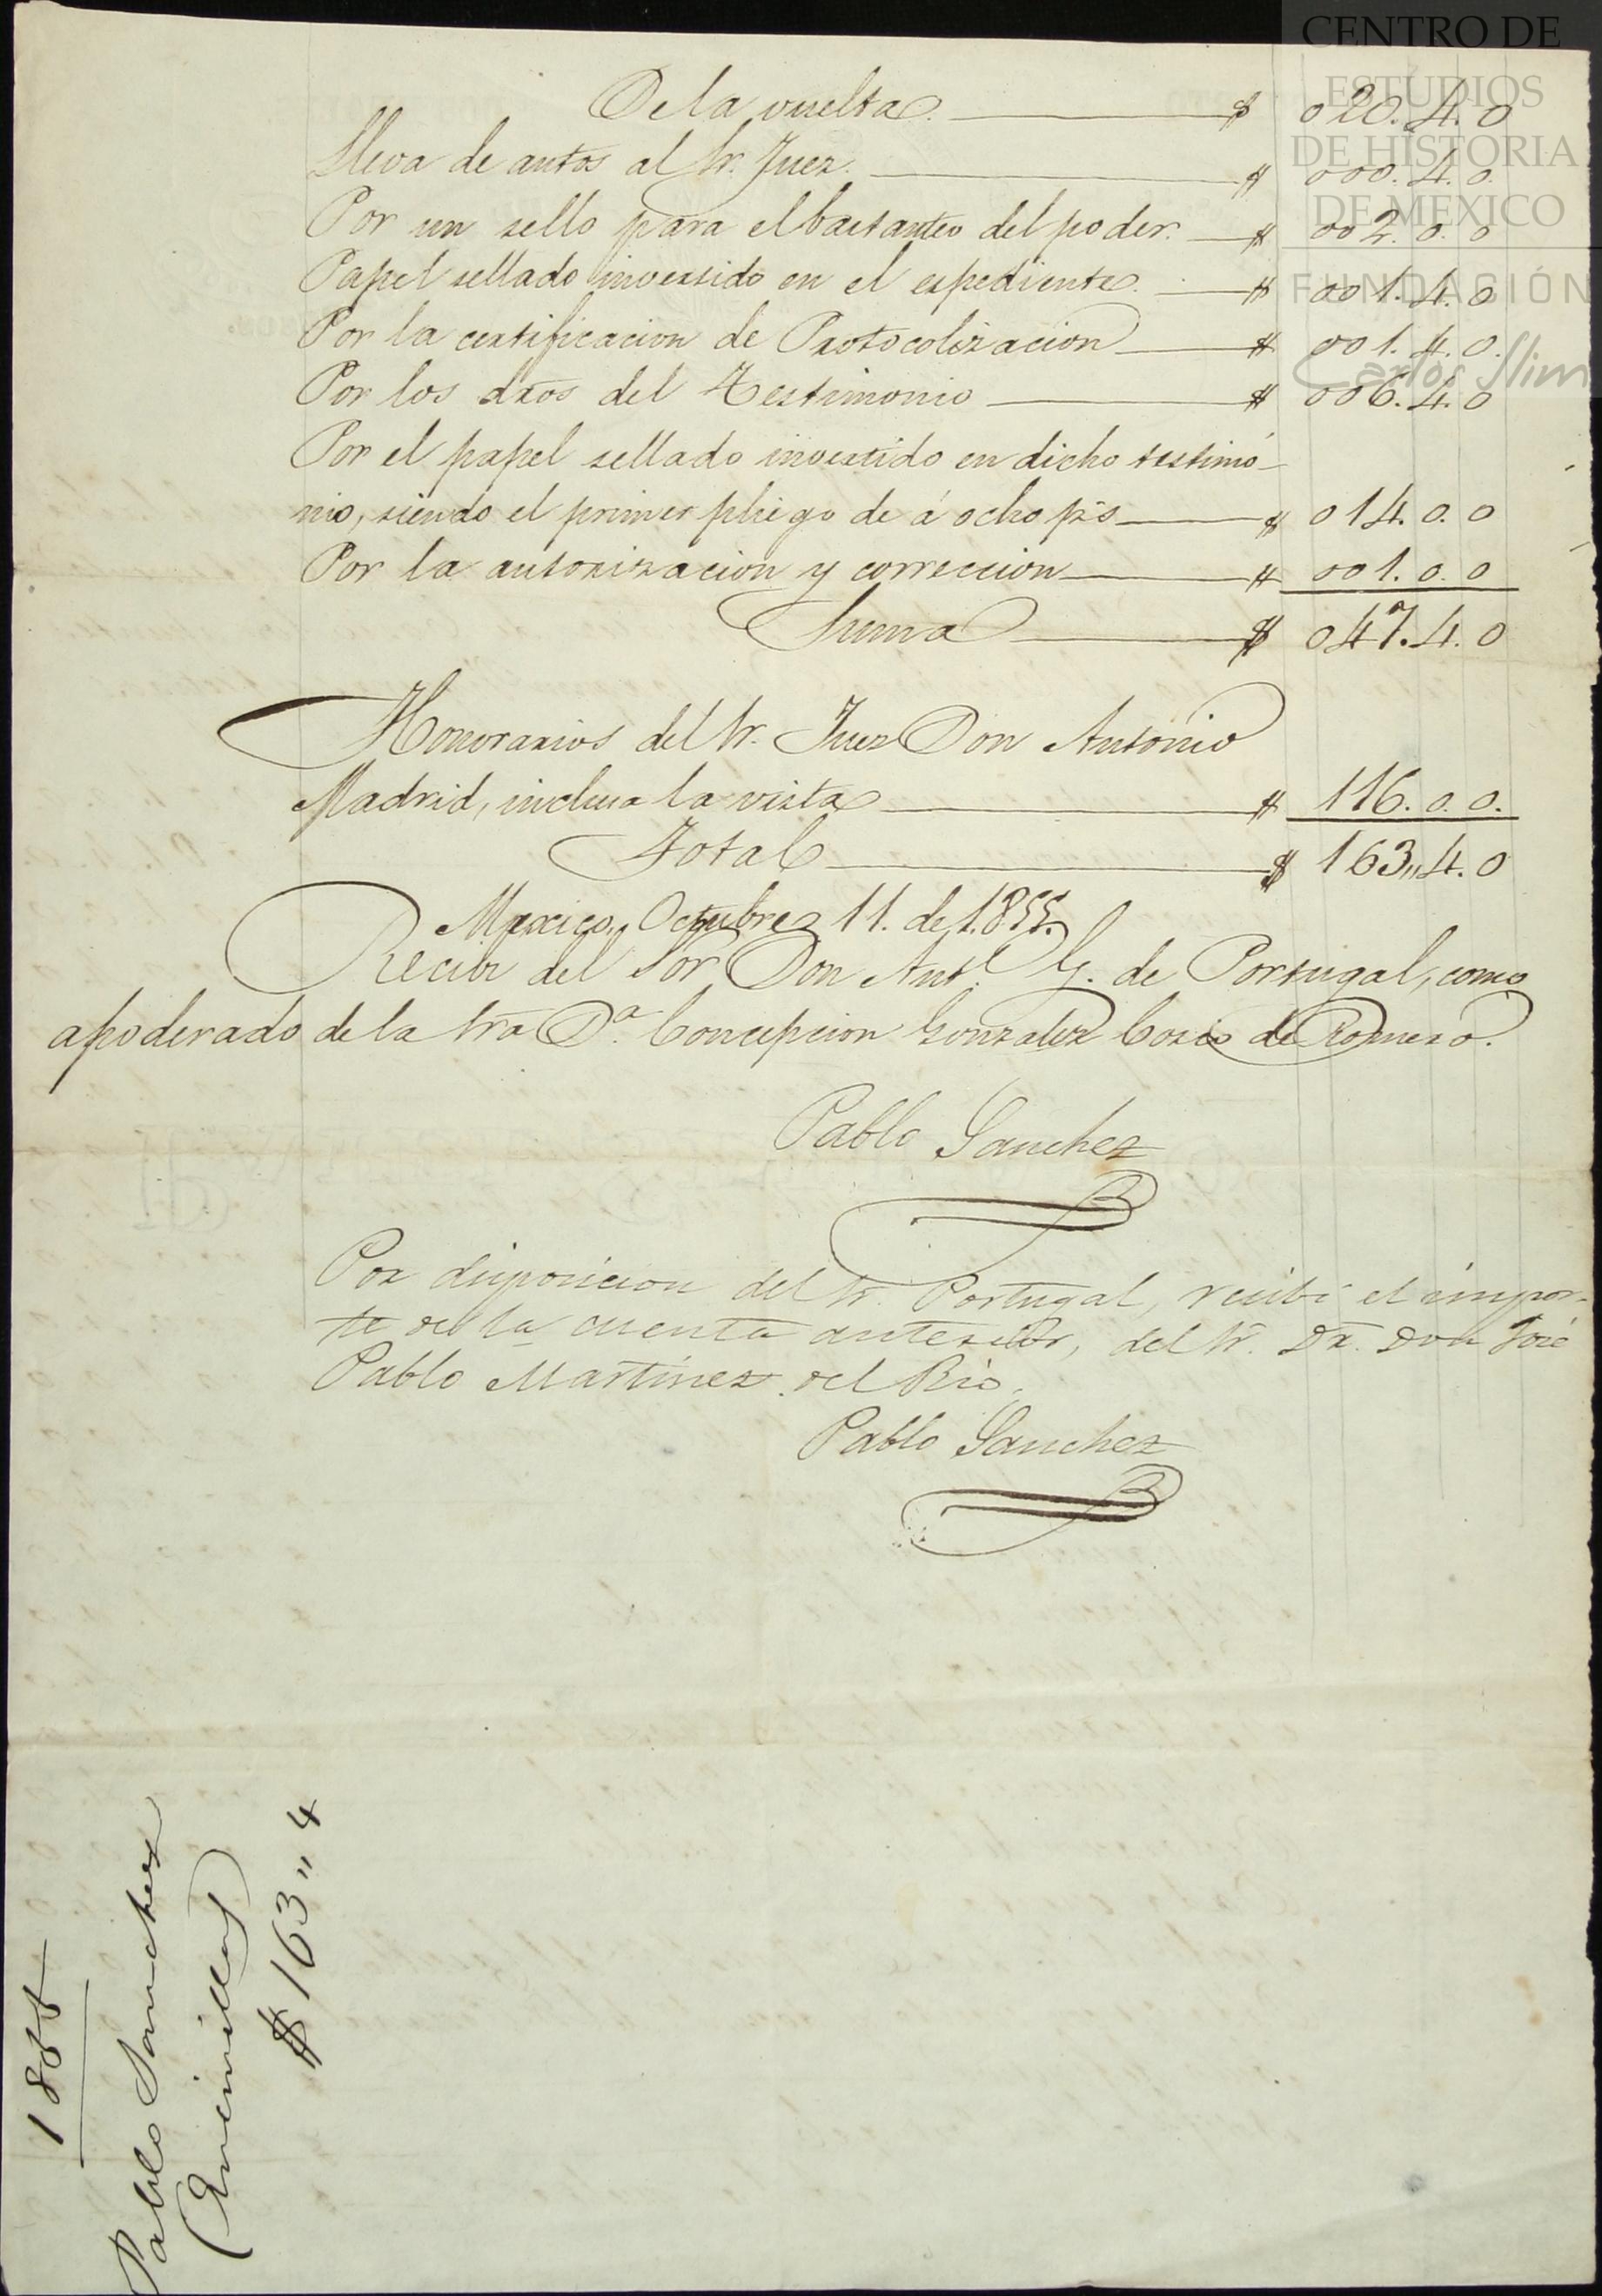 De la vuelta. $ 020.4.0
Lleva de autos al Sr. Juez. $ 000.4.0.
Por un sello para el bastanteo del poder. $ 002.0.0
Papel sellado invertido en el espediente. $ 001.4.0
Por la certificacion de Protocolizacion $ 001.4.0.
Por los dros del Testimonio $ 006.4.0
Por el papel sellado invertido en dicho testimó-
nio, siendo el primer pliego de á ocho ps $ 014.0.0
Por la autorizacion y correccion $ 001.0.0
Suma $ 047.4.0
Honorarios del Sr. Juez Don António
Madrid, inclusa la vista $ 116.0.0.
Total $ 163,,4.0
Mexico, Octubre 11. de 1.855.
Recibi del Sor Don Ant.º G. de Portugal, como
apoderado de la Sra Dª. Concepcion Gonzalez Cosio de Romero.
Pablo Sanchez
Por disposicion del Sr. Portugal, recibí el impor-
te de la cuenta anterior, del Sr. Dr. Don José
Pablo Martínez del Rio.
Pablo Sanchez
1855
Pablo Sanchez
(Encinillas)
$ 163,,4
CENTRO DE
ESTUDIOS
DE HISTORIA
DE MEXICO
FUNDACIÓN
Carlos Slim